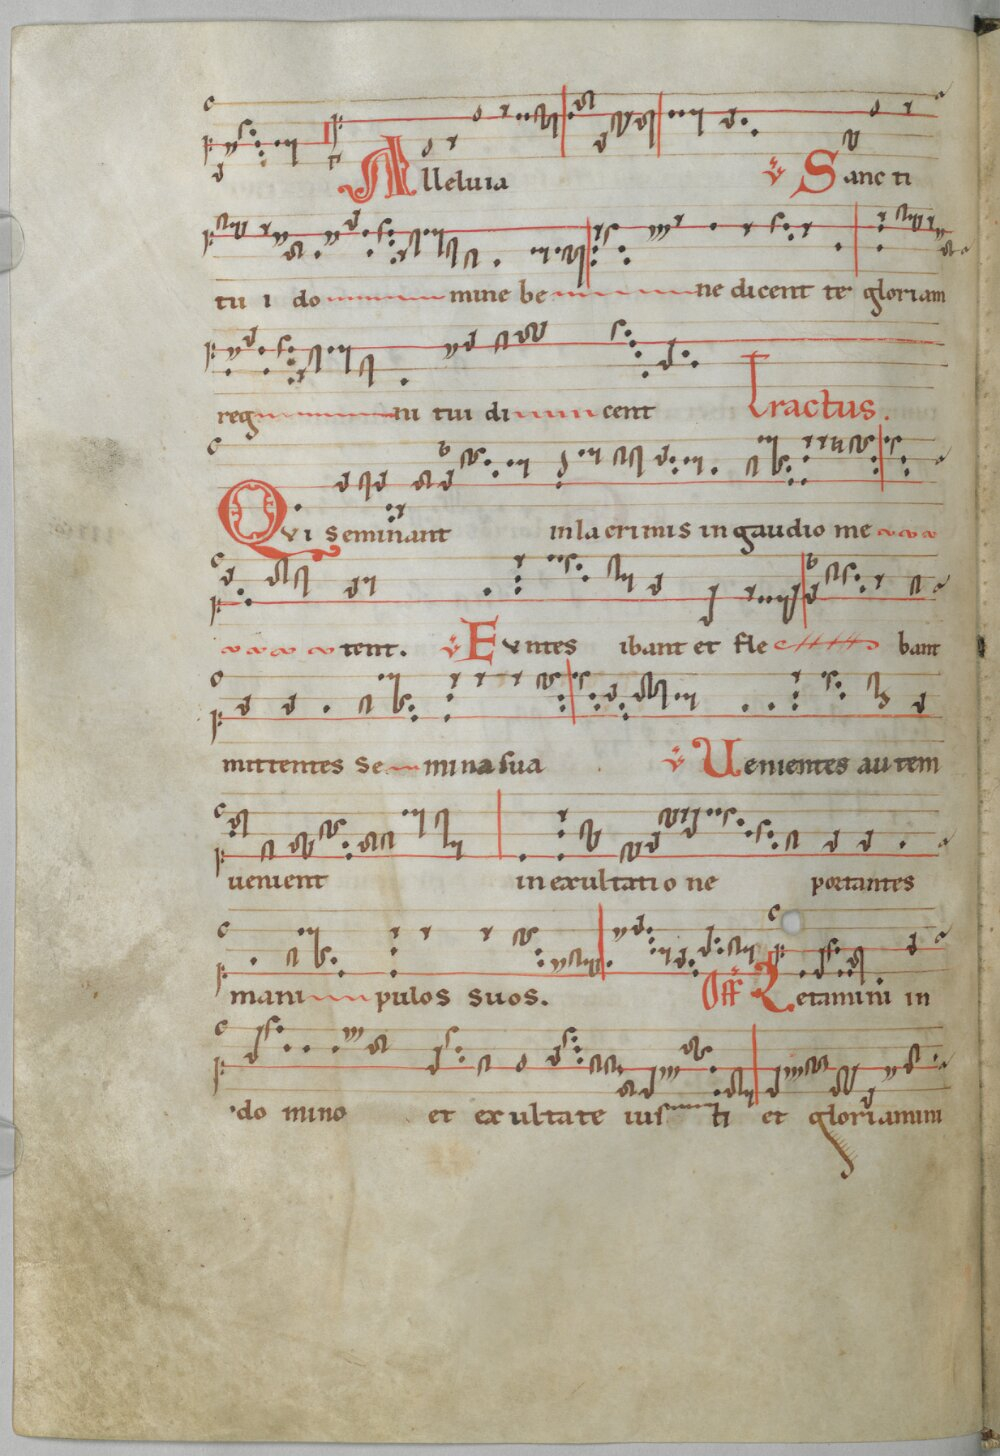 Alleluia ℣ Sanc ti
tu i do mine be ne dicent te gloriam
reg ni tui di cent Tractus.
Qvi seminant in la crimis in gaudio me
tent. ℣ Evntes ibant et fle bant
mittentes se mina sua ℣ Uenientes au tem
uenient in exultatio ne portantes
mani pulos suos. Off Letamini in
do mino et ex ultate ius ti et gloriamini